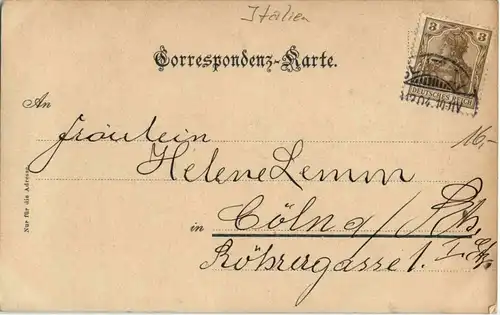 Italien
Correspondenz-Karte.
3 3
DEUTSCHES REICH
An
Fräulein
16,-
Helene Lemm
in Cöln a/Rh.
Röhrergasse 1.
Nur für die Adresse